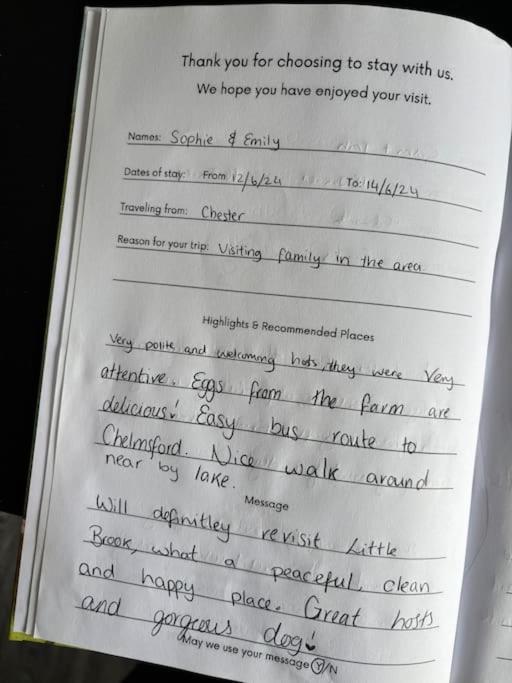 Thank you for choosing to stay with us.
We hope you have enjoyed your visit.
Names: Sophie & Emily
Dates of stay: From 12/6/24 To: 14/6/24
Traveling from: Chester
Reason for your trip: Visiting family in the area
Highlights & Recommended Places
Very polite and welcoming hots, they were Very
attentive. Eggs from the farm are
delicious! Easy bus route to
Chelmsford. Nice walk around
near by lake.
Message
Will definitley revisit Little
Brook, what a peaceful, clean
and happy place. Great hosts
and gorgeous dog!
May we use your message Y/N